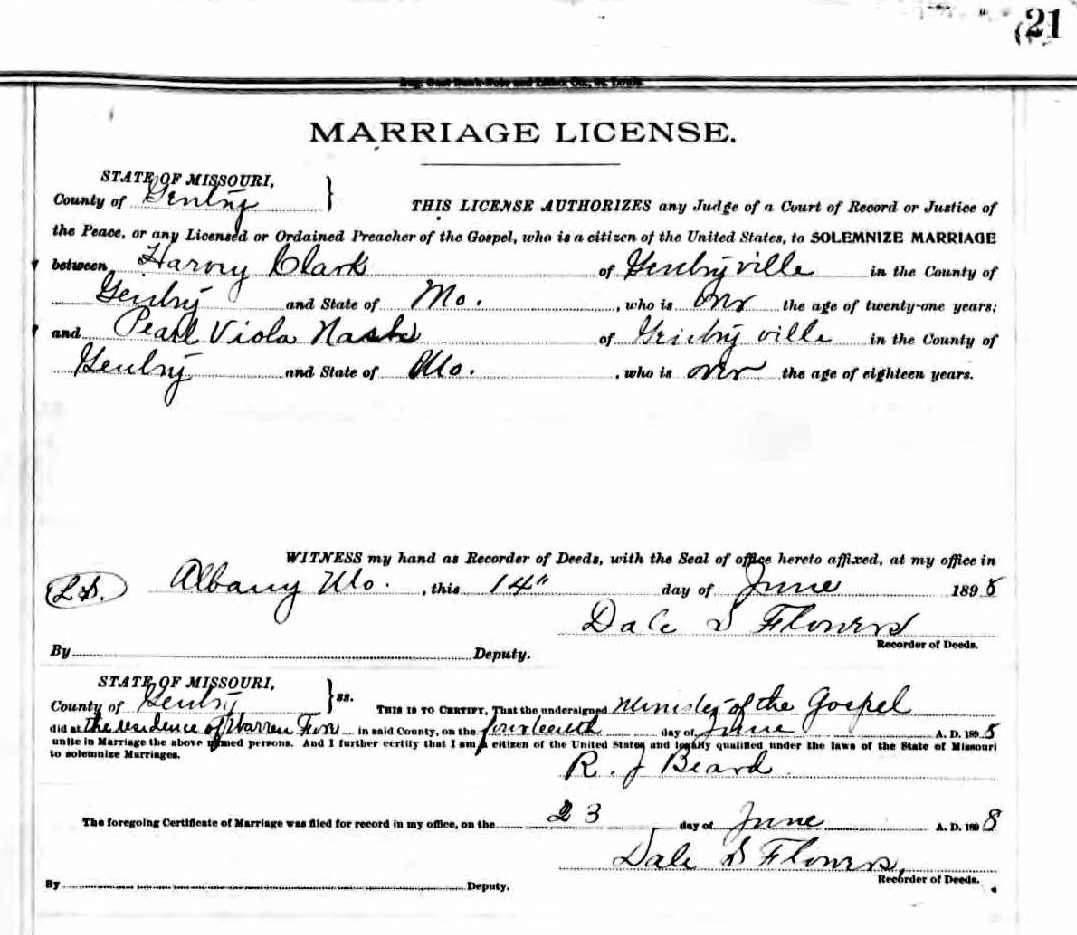 21
MARRIAGE LICENSE.
STATE OF MISSOURI,
County of Gentry } THIS LICENSE AUTHORIZES any Judge of a Court of Record or Justice of
the Peace, or any Licensed or Ordained Preacher of the Gospel, who is a citizen of the United States, to SOLEMNIZE MARRIAGE
between Harvey Clark of Gentryville in the County of
Gentry and State of Mo. , who is over the age of twenty-one years;
and Pearl Viola Nash of Gentryville in the County of
Gentry and State of Mo. , who is over the age of eighteen years.
WITNESS my hand as Recorder of Deeds, with the Seal of office hereto affixed, at my office in
L.S. Albany Mo. , this 14" day of June 1898
Dale S Flowers
Recorder of Deeds.
By Deputy.
STATE OF MISSOURI,
County of Gentry } ss. THIS IS TO CERTIFY, That the undersigned Minister of the Gospel
did at the residence of Warren in said County, on the fourteenth day of June A. D. 1898
unite in Marriage the above named persons. And I further certify that I am a citizen of the United States and legally qualified under the laws of the State of Missouri
to solemnize Marriages.
R. J Beard
The foregoing Certificate of Marriage was filed for record in my office, on the 23 day of June A. D. 1898
Dale S Flowers,
Recorder of Deeds.
By Deputy.